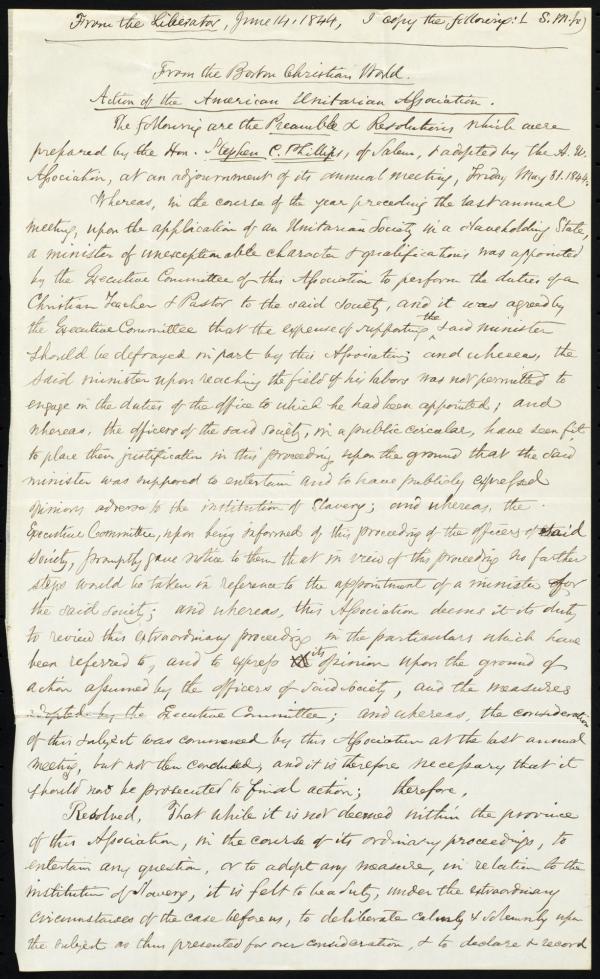 From the Liberator, June 14, 1844, I copy the following: [S. M. Jr)
From the Boston Christian World.
Action of the American Unitarian Association.
The following are the Preamble & Resolutions which were
prepared by the Hon. Stephen C. Phillips, of Salem, & adopted by the A. U.
Association, at an adjournment of its annual meeting, Friday May 31. 1844.
Whereas, in the course of the year preceding the last annual
meeting, upon the application of an Unitarian Society in a slaveholding State,
a minister of unexceptionable character & qualifications was appointed
by the Executive Committee of this Association to perform the duties of a
Christian Teacher & Pastor to the said Society, and it was agreed by
the Executive Committee that the expense of supporting the said minister
should be defrayed in part by this Association; and whereas, the
said minister upon reaching the field of his labors was not permitted to
engage in the duties of the office to which he had been appointed; and
whereas, the officers of the said Society, in a public circular, have seen fit
to place their justification in this proceeding upon the ground that the said
minister was supposed to entertain and to have publicly expressed
opinions adverse to the institution of Slavery; and whereas, the
Executive Committee, upon being informed of this proceeding of the officers of said
Society, promptly gave notice to them that in view of this proceeding no farther
steps would be taken in reference to the appointment of a minister for
the said Society; and whereas, this Association deems it its duty
to review this extraordinary proceeding in the particulars which have
been referred to, and to express its opinion upon the ground of
action assumed by the officers of said Society, and the measures
adopted by the Executive Committee; and whereas, the consideration
of this subject was commenced by this Association at the last annual
meeting, but not then concluded, and it is therefore necessary that it
should now be prosecuted to final action; therefore,
Resolved, That while it is not deemed within the province
of this Association, in the course of its ordinary proceedings, to
entertain any question, or to adopt any measure, in relation to the
Institution of Slavery, it is felt to be a duty, under the extraordinary
circumstances of the case before us, to deliberate calmly & solemnly upon
the subject as thus presented for our consideration, & to declare & record